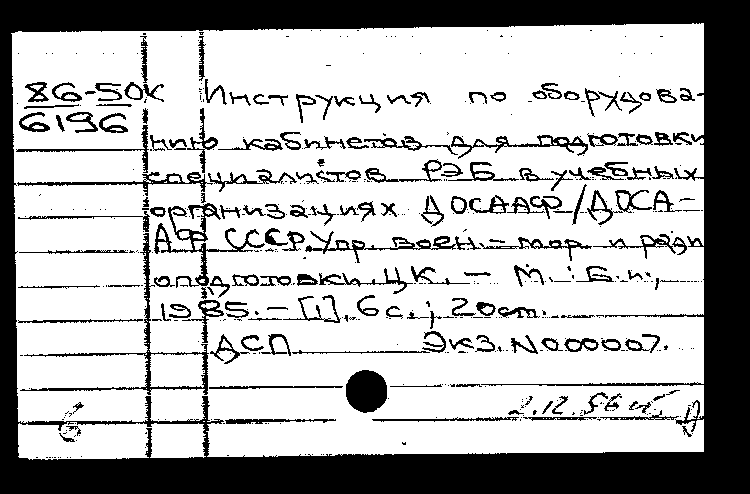 86-50к Инструкция по оборудова-
6196
нию кабинетов для подготовки
специалистов РЭБ в учебных
организациях ДОСААФ/ДОСА-
АФ СССР. Упр. воен.-мор. и ради
оподготовки. ЦК. - М.: Б.и.,
1985. - [1], 6 с.; 20 см.
ДСП. Экз. N000007.
2.12.86
6